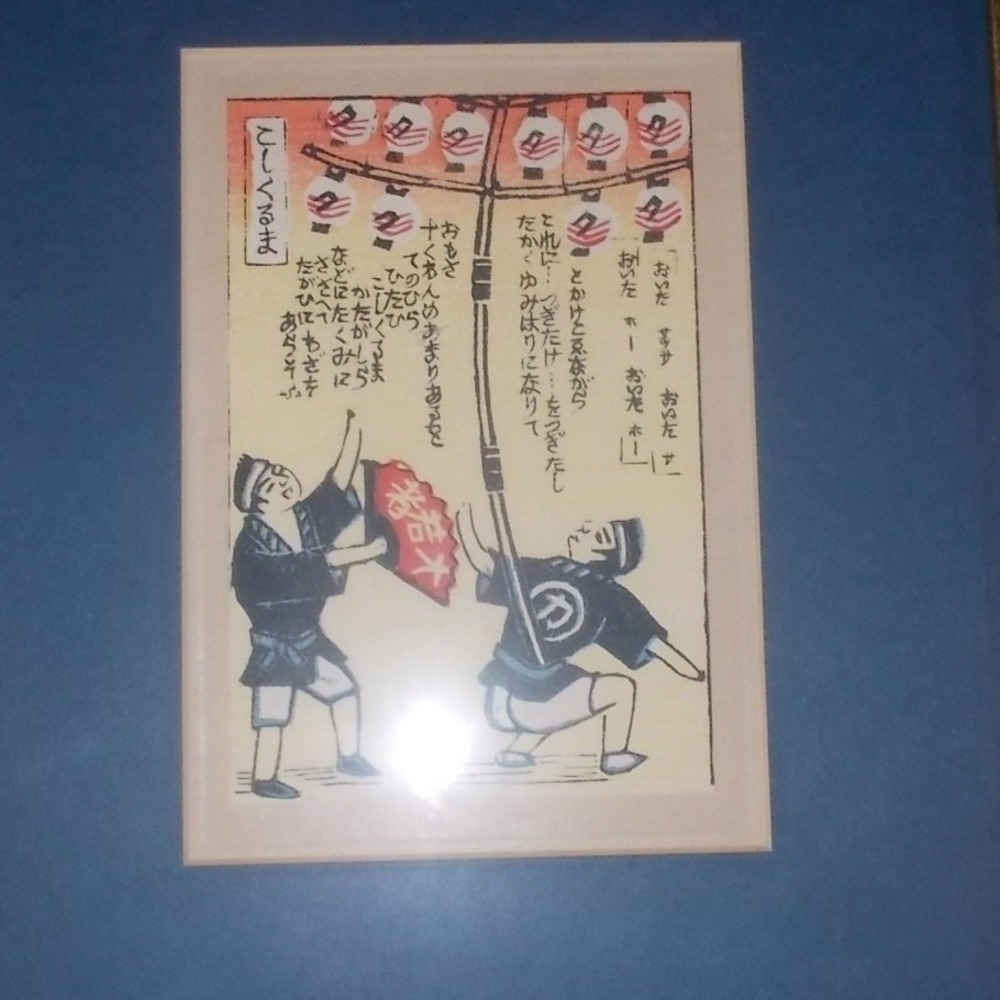 こしくるま
「おいた サッサ おいた サ」
「おいた ホー おいた ホー」
とかけごゑながら
とれに…つぎたけ…をつぎたし
たかくゆみはりになりて
おもさ
十くわんめあまりあるを
てのひら
ひたひ
こしくるま
かたがしら
などにたくみに
ささへて
たがひにわざを
あらそふ
夕
夕
夕
夕
夕
夕
夕
夕
夕
夕
若